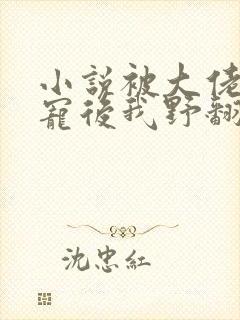 小說被大佬
寵後我野翻
沈忠紅